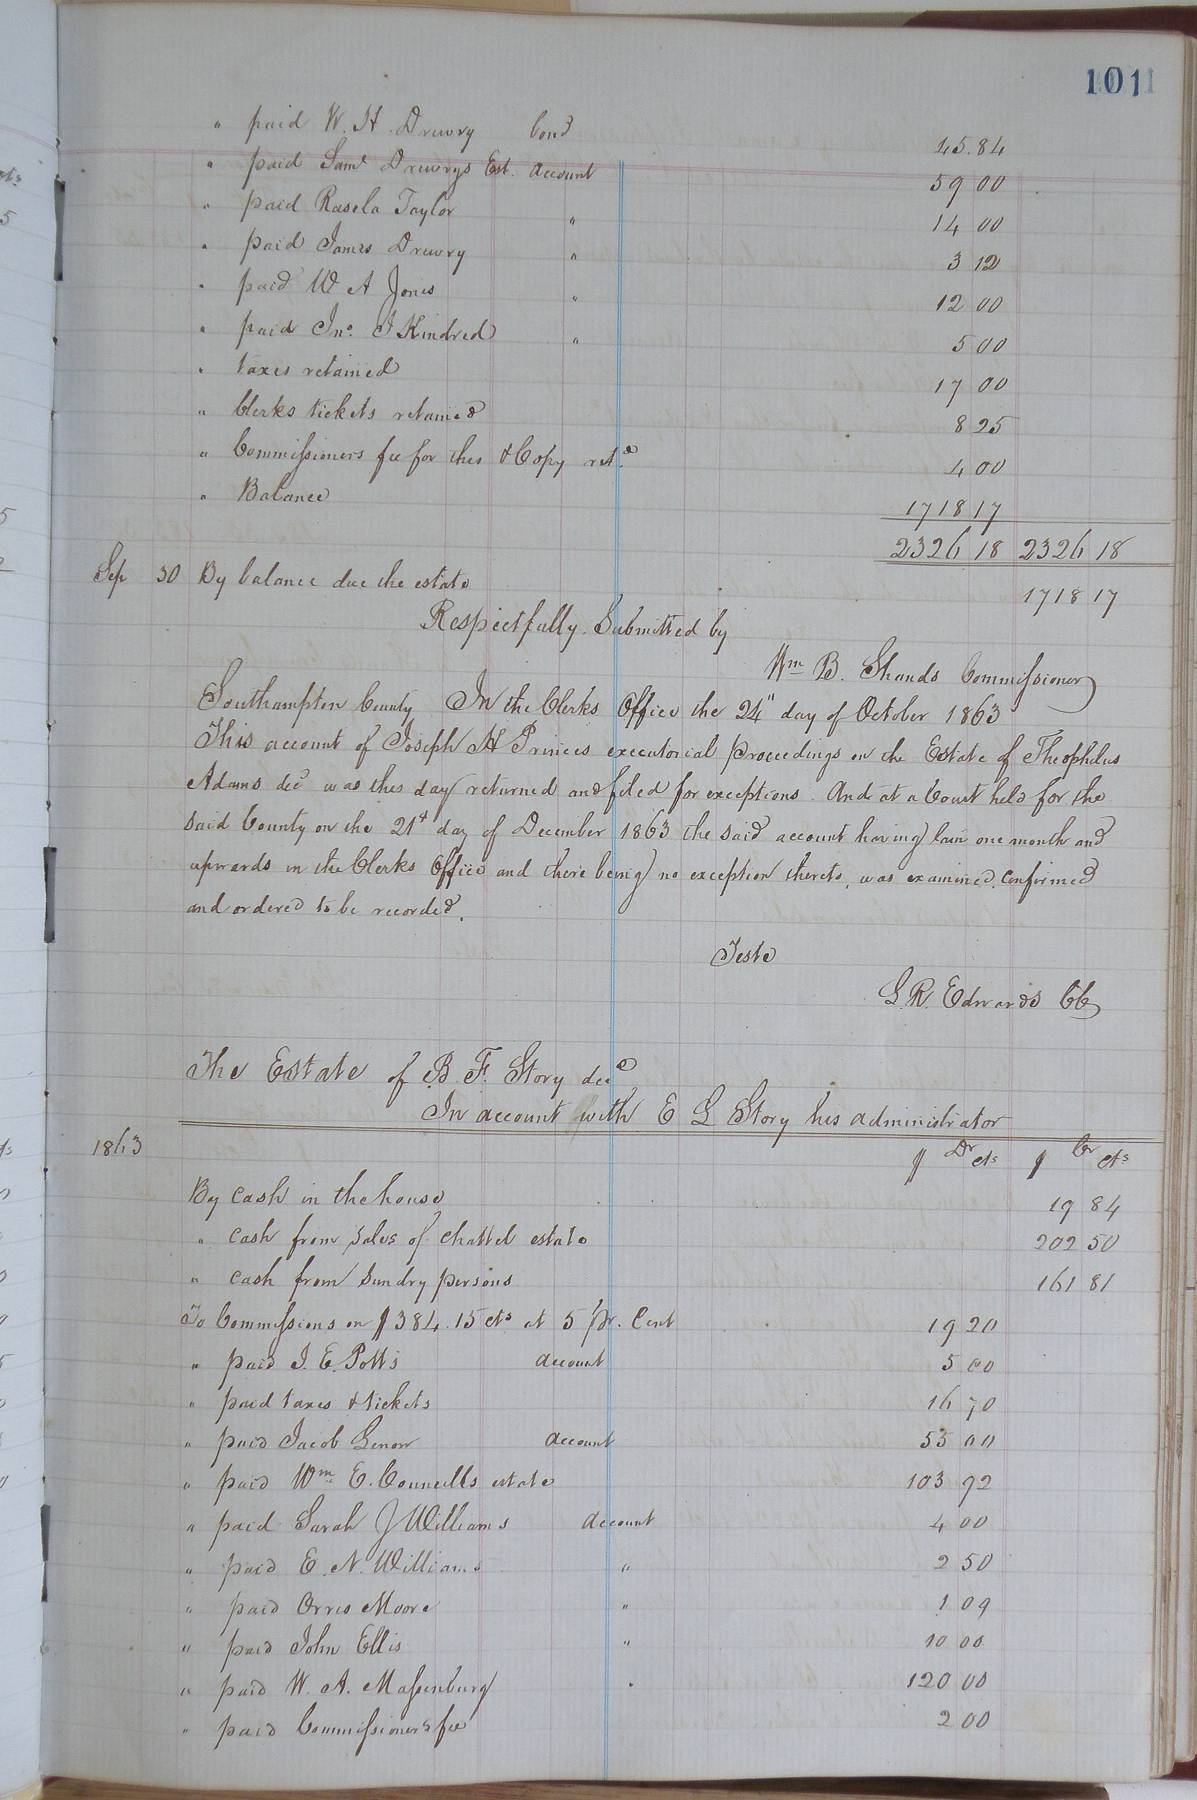 101
" paid W. H. Drewry bond 45.84
" paid Saml Drewrys Est. account 59 00
" paid Rasela Taylor " 14 00
" paid James Drewry " 3 12
" paid W A Jones " 12 00
" paid Jno. J Kindred " 5 00
" taxes retained 17 00
" Clerks tickets retained 8 25
" Commissioners fee for this & Copy retd 4 00
" Balance 1718 17
2326 18 2326 18
Sep 30 By balance due the estate 1718 17
Respectfully Submitted by
Wm B. Shands Commissioner
Southampton County In the Clerks Office the 24" day of October 1863
This account of Joseph H Princes executorial proceedings on the Estate of Theophilus
Adams decd was this day returned and filed for exceptions. And at a Court held for the
said County on the 21st day of December 1863 the said account having lain one month and
upwards in the Clerks Office and there being no exception thereto, was examined, confirmed
and ordered to be recorded.
Teste
L. R. Edwards CC
The Estate of B. F. Story decd
In account with E G Story his administrator
1863 $ Dr cts $ Cr cts
By cash in the house 19 84
" cash from Sales of chattel estate 202 50
" cash from Sundry persons 161 81
To Commissions on $384.15 cts at 5 pr. Cent 19 20
" paid J. E. Potts account 5 00
" paid taxes & tickets 16 70
" paid Jacob account 55 00
" paid Wm E. Councills estate 103 92
" paid Sarah J Williams account 4 00
" paid E. N. Williams " 2 50
" paid Orris Moore " 1 09
" paid John Ellis " 10 00
" paid W. A. Massenburg " 120 00
" paid Commissioners fee 2 00